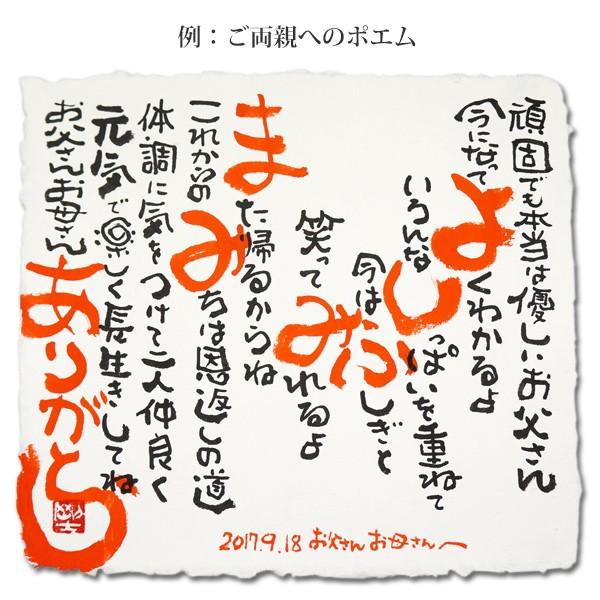 例：ご両親へのポエム
頑固でも本当は優しいお父さん
今になってよくわかるよ
いろんなしっぱいを重ねて
今はふしぎと
笑ってみれるよ
また帰るからね
これからのみちは恩返しの道
体調に気をつけて二人仲良く
元気で楽しく長生きしてね
お父さんお母さんありがとう
2017.9.18 お父さんお母さんへ